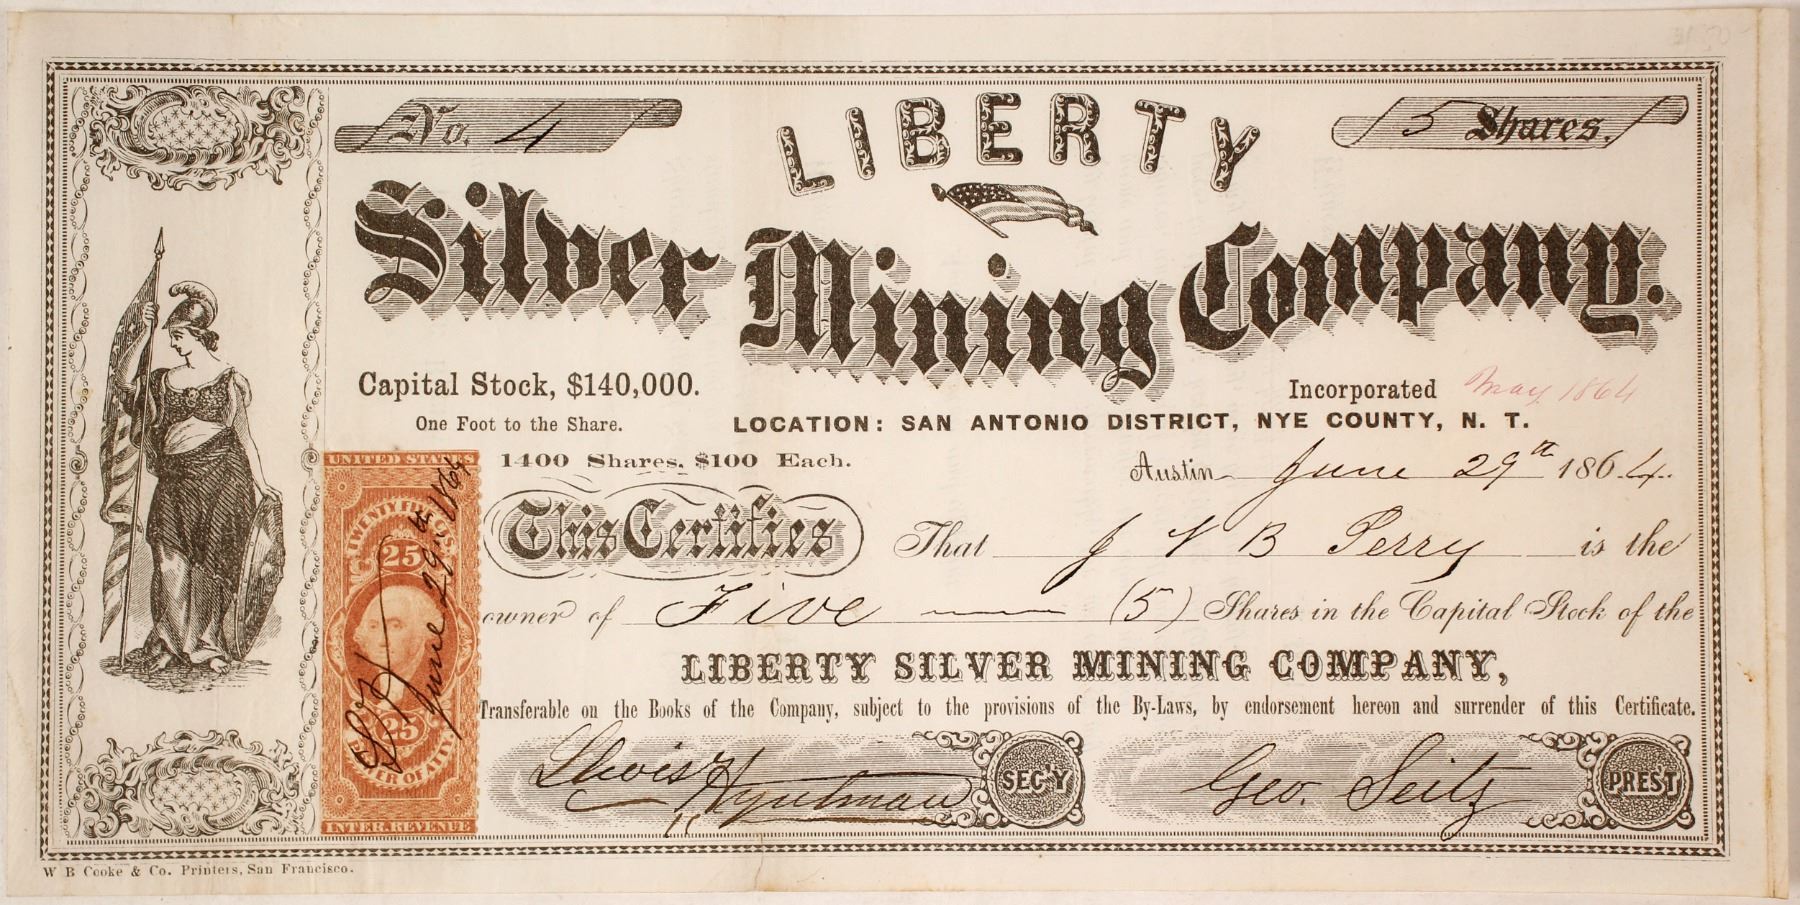 No. 4
LIBERTY
5 Shares.
Silver Mining Company.
Capital Stock, $140,000.
Incorporated May 1864
One Foot to the Share.
LOCATION: SAN ANTONIO DISTRICT, NYE COUNTY, N. T.
1400 Shares. $100 Each.
Austin June 29th 1864.
This Certifies That J V B Perry is the
owner of Five (5) Shares in the Capital Stock of the
LIBERTY SILVER MINING COMPANY,
Transferable on the Books of the Company, subject to the provisions of the By-Laws, by endorsement hereon and surrender of this Certificate.
SEC'Y
Geo. Seitz PRES'T
UNITED STATES
TWENTY FIVE CTS.
25
June 29th 1864
25
POWER OF ATT'Y
INTER. REVENUE
W B Cooke & Co. Printers, San Francisco.